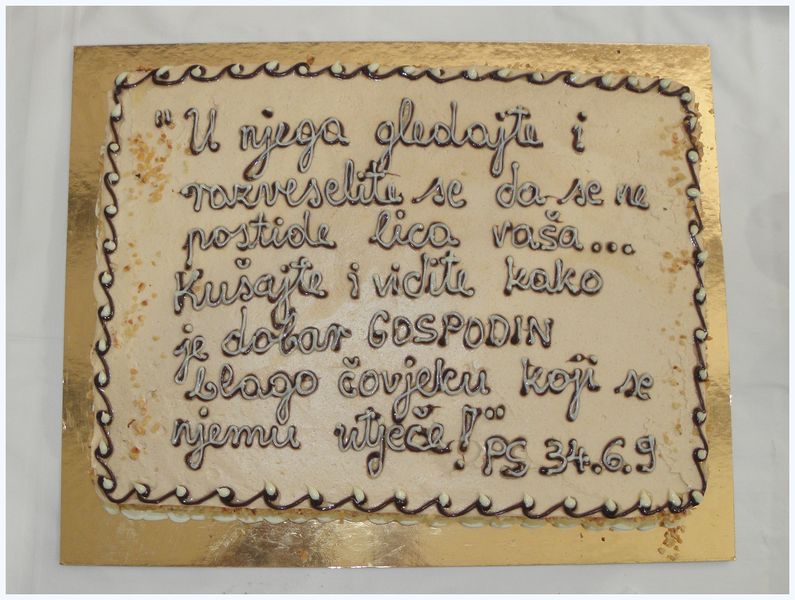 "U njega gledajte i
razveselite se da se ne
postide lica vaša...
Kušajte i vidite kako
je dobar GOSPODIN
blago čovjeku koji se
njemu utječe!"
PS 34.6.9